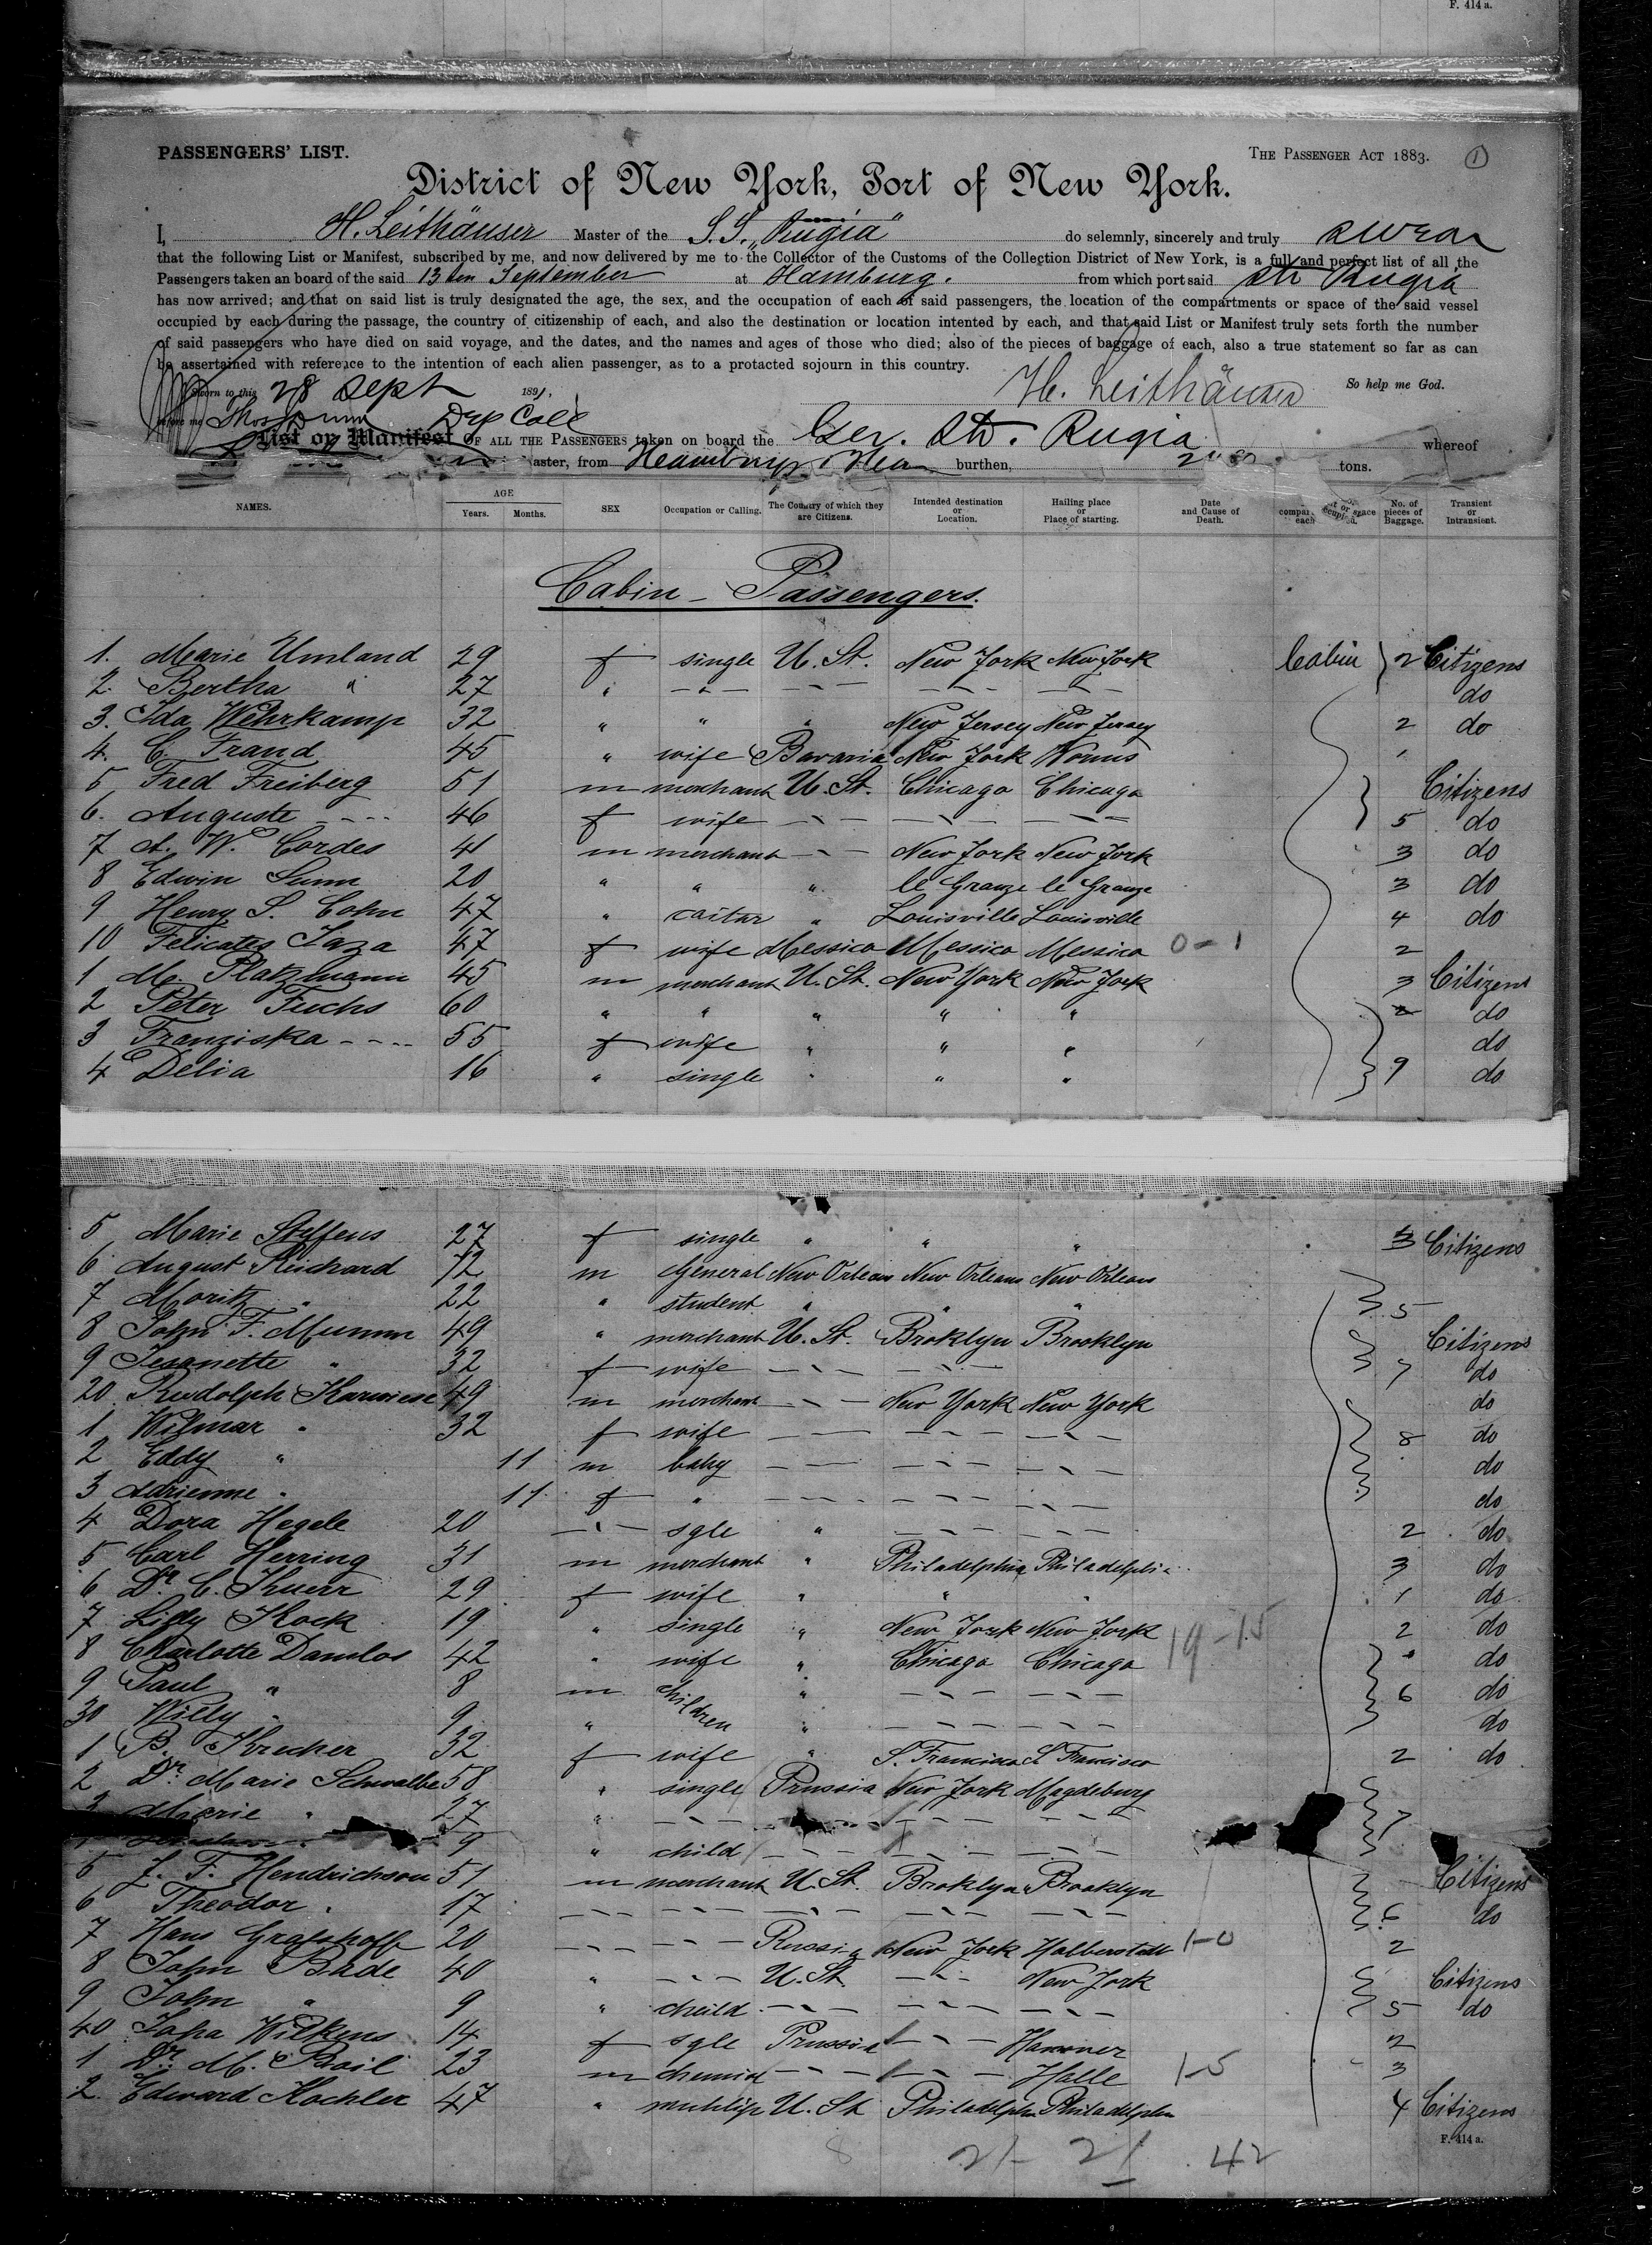 F. 414 a.
PASSENGERS' LIST.
THE PASSENGER ACT 1883.
1
District of New York, Port of New York.
I, H. Leithäuser Master of the S.S. "Rugia" do selemnly, sincerely and truly swear
that the following List or Manifest, subscribed by me, and now delivered by me to the Collector of the Customs of the Collection District of New York, is a full and perfect list of all the
Passengers taken an board of the said 13ten September at Hamburg. from which port said Str Rugia
has now arrived; and that on said list is truly designated the age, the sex, and the occupation of each of said passengers, the location of the compartments or space of the said vessel
occupied by each during the passage, the country of citizenship of each, and also the destination or location intented by each, and that said List or Manifest truly sets forth the number
of said passengers who have died on said voyage, and the dates, and the names and ages of those who died; also of the pieces of baggage of each, also a true statement so far as can
be assertained with reference to the intention of each alien passenger, as to a protacted sojourn in this country.
Sworn to this 28 Sept 1891, H. Leithäuser So help me God.
before me Thos Dunn Dep Coll
List or Manifest OF ALL THE PASSENGERS taken on board the Ger. Str. Rugia whereof
aster, from Hamburg burthen, tons.
NAMES. AGE Years. Months. SEX Occupation or Calling. The Country of which they are Citizens. Intended destination or Location. Hailing place or Place of starting. Date and Cause of Death. No. of pieces of Baggage. Transient or Intransient.
Cabin - Passengers.
1. Marie Umland 29 f single U. St. New York New York Cabin 2 Citizens
2. Bertha " 27 " - - - - - - - - - - - - do
3. Ida Wehrkamp 32 " " " New Jersey New Jersey 2 do
4. C. Frand 45 " wife Bavaria New York Worms 1
5 Fred Freiberg 51 m merchant U. St. Chicago Chicago Citizens
6. Auguste - - - - 46 f wife - - - - - - - - - 5 do
7 A. W. Cordes 41 m merchant - - - New York New York 3 do
8 Edwin Sumn 20 " " " le Grange le Grange 3 do
9 Henry S. Cohn 47 " " Louisville Louisville 4 do
10 Felicates Taza 47 f wife Messico Messico Messico 0-1 2
1 M. Platzmann 45 m merchant U. St. New York New York 3 Citizens
2 Peter Fuchs 60 " " " " " do
3 Franziska - - - - 55 f wife " " " do
4 Delia 16 " single " " " 9 do
5 Marie Steffens 27 f single " " " 3 Citizens
6 August Reichard 72 m General New Orleans New Orleans New Orleans
7 Moritz " 22 " student " " " 5
8 John F. Mumm 49 " merchant U. St. Broklyn Brooklyn Citizens
9 Jeanette " 32 f wife - - - - - - 7 do
20 Rudolph Karwiese 49 m merchant - - - New York New York do
1 Wilmar " 32 f wife - - - - - - - - 8 do
2 Eddy " 11 m baby - - - - - - - - do
3 Adrienne " 11 f " - - - - - - - - - do
4 Dora Hegele 20 - - - sgle " - - - - - - 2 do
5 Carl Herring 31 m merchant " Philadelphia Philadelphia 3 do
6 Dr. C. Knerr 29 f wife " " " 1 do
7 Lilly Kock 19 " single " New York New York 2 do
19-15
8 Charlotte Damlos 42 " wife " Chicago Chicago do
9 Paul " 8 m children " - - - - - - 6 do
30 Willy " 9 " " - - - - - - do
1 B. Krecker 32 f wife " S. Francisco S. Francisco 2 do
2 Dr. Marie Schwalbe 58 " single Prussia New York Magdeburg
3 Marie " 27 " - - - - - - - - - 7
9 " child - - - - - - - - -
5 J. F. Hendrichson 51 m merchant U. St. Broklyn Brooklyn Citizens
6 Theodor " 17 - - - - - - - - - - - - - - - 6 do
7 Hans Gralshoff 20 - - - - - - Russia New York Halberstadt 1-0 2
8 John Bade 40 " - - - U. St. - - - New York Citizens
9 John " 9 " cheild - - - - - - - - - 5 do
40 Wilkens 14 f sgle Prussia - - - Hannover 2
1 Dr. M. Bail 23 m chemist - - - - - - Halle 1-5 3
2. Edward Kochler 47 " U. St. Philadelphia Philadelphia 4 Citizens
F. 414 a.
8 21 - 21 42